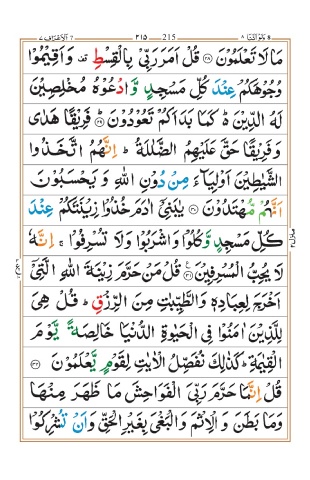 ولواننا ٨ ٢١٥ 215 الاعراف ٧
مَا لَا تَعْلَمُوْنَ ﴿۲۸﴾ قُلْ اَمَرَ رَبِّیْ بِالْقِسْطِ ۫ وَ اَقِیْمُوْا
وُجُوْهَكُمْ عِنْدَ كُلِّ مَسْجِدٍ وَّ ادْعُوْهُ مُخْلِصِیْنَ
لَهُ الدِّیْنَ ؕ كَمَا بَدَاَكُمْ تَعُوْدُوْنَ ﴿۲۹﴾ فَرِیْقًا هَدٰی
وَ فَرِیْقًا حَقَّ عَلَیْهِمُ الضَّلٰلَةُ ؕ اِنَّهُمُ اتَّخَذُوا
الشَّیٰطِیْنَ اَوْلِیَآءَ مِنْ دُوْنِ اللّٰهِ وَ یَحْسَبُوْنَ
اَنَّهُمْ مُّهْتَدُوْنَ ﴿۳۰﴾ یٰبَنِیْۤ اٰدَمَ خُذُوْا زِیْنَتَكُمْ عِنْدَ
كُلِّ مَسْجِدٍ وَّ كُلُوْا وَ اشْرَبُوْا وَ لَا تُسْرِفُوْا ۚ اِنَّهٗ
لَا یُحِبُّ الْمُسْرِفِیْنَ ﴿۳۱﴾ قُلْ مَنْ حَرَّمَ زِیْنَةَ اللّٰهِ الَّتِیْۤ
اَخْرَجَ لِعِبَادِهٖ وَ الطَّیِّبٰتِ مِنَ الرِّزْقِ ؕ قُلْ هِیَ
لِلَّذِیْنَ اٰمَنُوْا فِی الْحَیٰوةِ الدُّنْیَا خَالِصَةً یَّوْمَ
الْقِیٰمَةِ ؕ كَذٰلِكَ نُفَصِّلُ الْاٰیٰتِ لِقَوْمٍ یَّعْلَمُوْنَ ﴿۳۲﴾
قُلْ اِنَّمَا حَرَّمَ رَبِّیَ الْفَوَاحِشَ مَا ظَهَرَ مِنْهَا
وَ مَا بَطَنَ وَ الْاِثْمَ وَ الْبَغْیَ بِغَیْرِ الْحَقِّ وَ اَنْ تُشْرِكُوْا